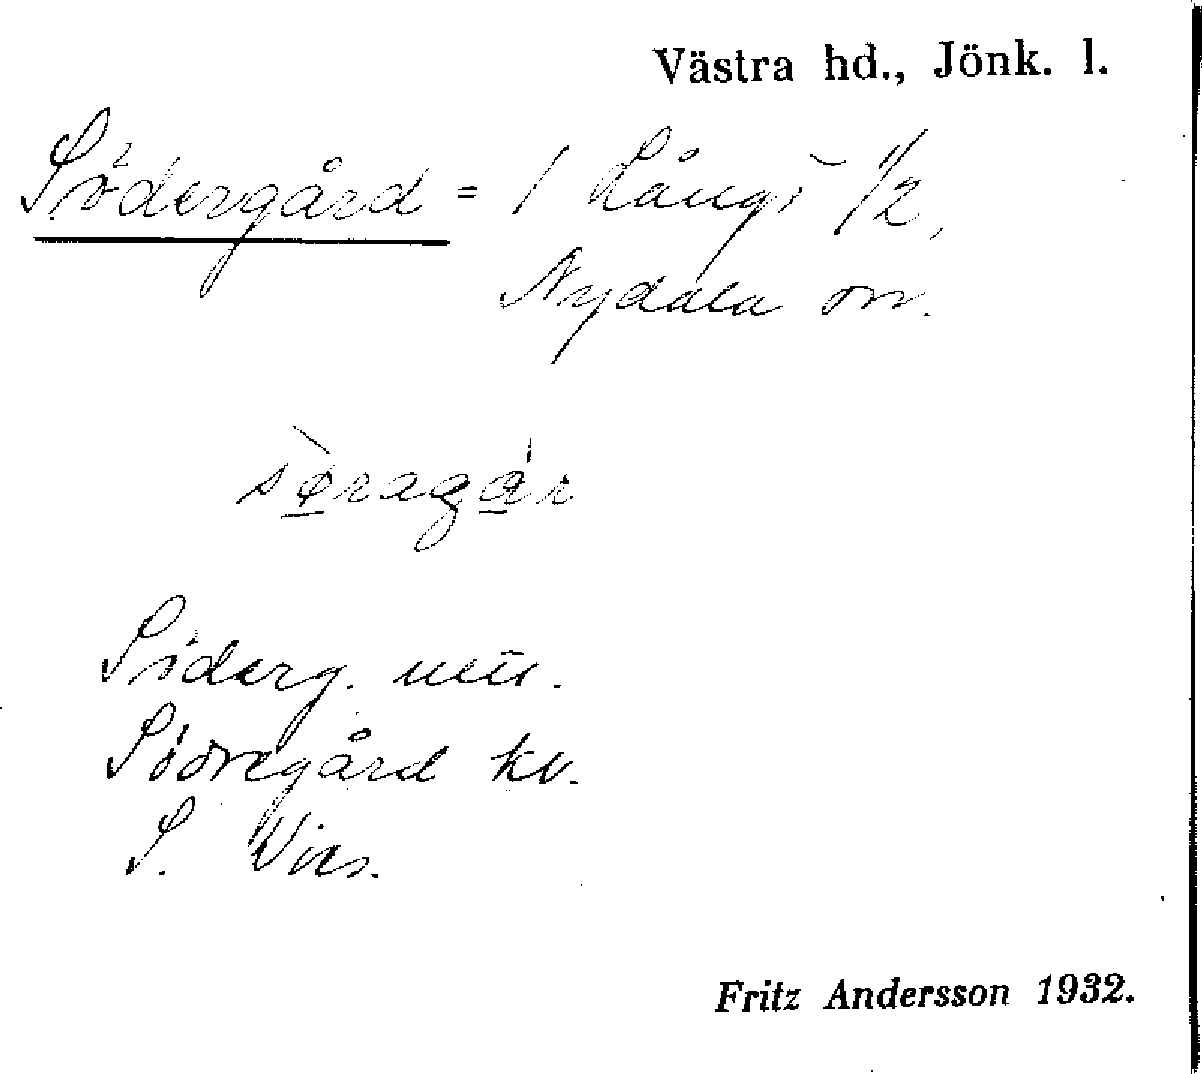 Västra hd., Jönk. l.
Södergård = 1 Långö 1/2,
Nydala sn.
søragår
Söderg. uttr.
Södregård kv.
S. Wies.
Fritz Andersson 1932.